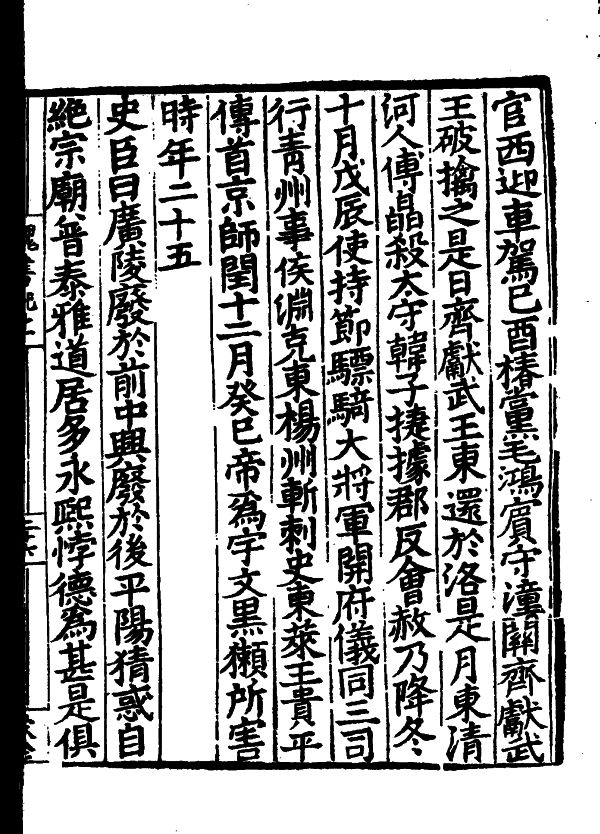 官西迎車駕己酉椿黨毛鴻賓守潼關齊獻武
王破擒之是日齊獻武王東還於洛是月東清
河人傅皛殺太守韓子捷據郡反會赦乃降冬
十月戊辰使持節驃騎大將軍開府儀同三司
行青州事侯淵克東楊州斬刺史東萊王貴平
傳首京師閏十二月癸巳帝為宇文黑獺所害
時年二十五
史臣曰廣陵廢於前中興廢於後平陽猜惑自
絶宗廟普泰雅道居多永熙悖德為甚是俱